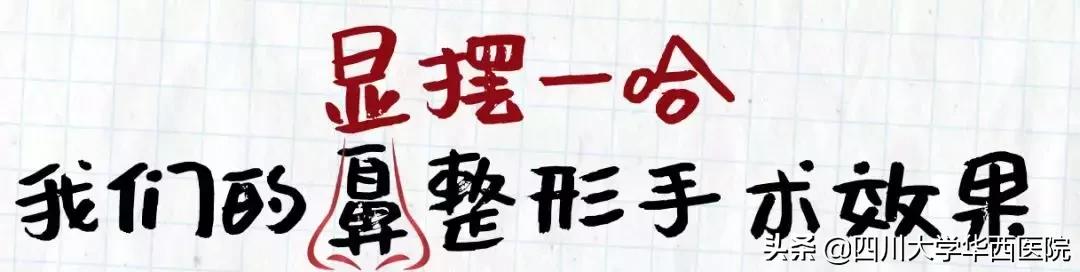 显摆一哈
我们的鼻整形手术效果
头条 @四川大学华西医院